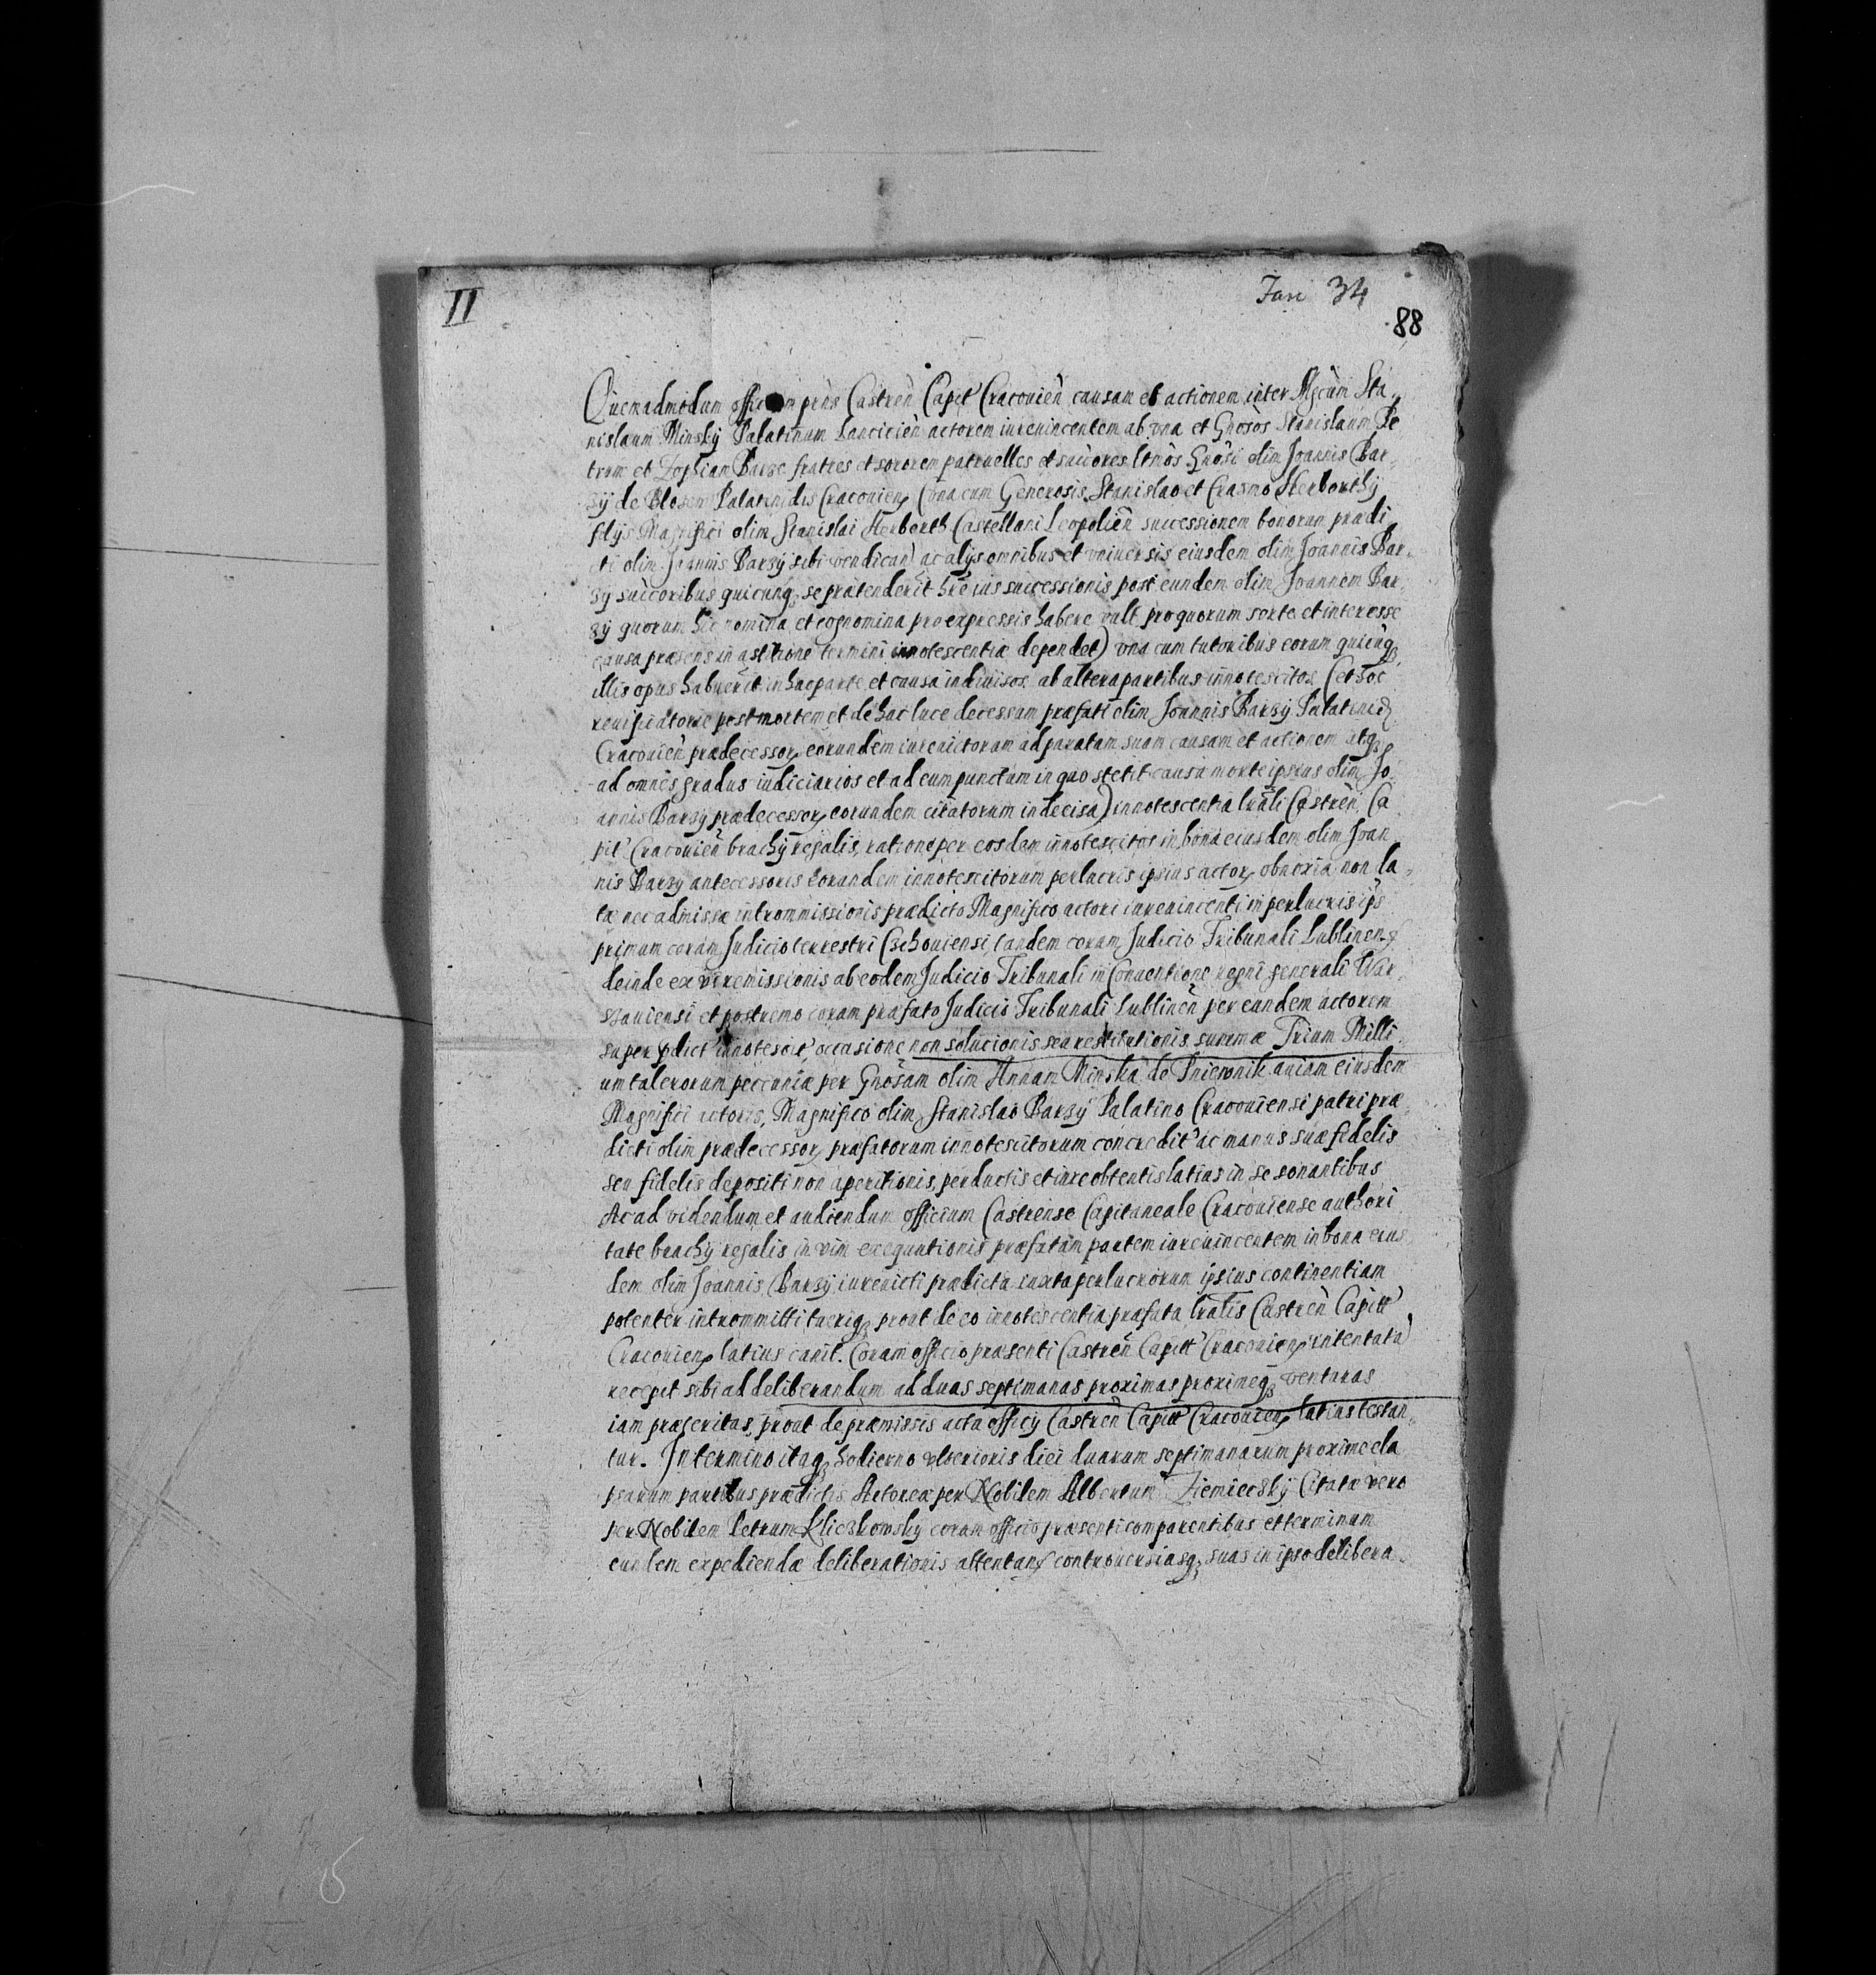 II
Fasc 34
88
Quemadmodum officium prñs Castren̄ Capit' Cracouien̄ causam et actionem inter Mgcūm Sta,
nislaum Minsky Palatinum Lancicien̄ actorem iureuincentem ab vna et Gnōsos Stanislaum Pe
trum et Zophiam Barze fratres et sororem patruelles et succores ltm̄os Gnōsi olim Joannis Bar,
zy de Blozew Palatinidis Cracouien, (vna cum Generosis Stanislao et Erasmo Herborthy
filys Magnifici olim Stanislai Herborth Castellani Leopolien̄ successionem bonorum prædi
cti olim Joannis Barzy sibi vendican) ac alys omnibus et vniuersis eiusdem olim Joannis Bar,
zy succoribus quicunq, se prætenderit hr̄e ius successionis post eundem olim Joannem Bar,
zy quorum hic nomina et cognomina pro expressis habere vult pro quorum sorte et interesse
causa præsens in termini innotescentiæ dependet) vna cum tutoribus eorum quicūq,
illis opus habuerit in hac parte et causa indiuisos ab altera partibus innotescitos (et hoc
reuificatorie post mortem et de hac luce decessum præfati olim Joannis Barzy Palatinid
Cracouien̄ prædecessor, eorundem iureuictorum ad paratam suam causam et actionem atq,
ad omnes gradus iudiciarios et ad eum punctum in quo stetit causa morte ipsius olim Jo,
annis Barzy prædecessor, eorundem citatorum indecisa) innotescentia lrāli Castren̄ Ca
pit' Cracouien̄ brachy regalis, ratione per eosdem innotescitos in bona eiusdem olim Joan
nis Barzy antecessoris eorundem innotescitorum perlucris ipsius actor, obnoxia non la,
tæ nec admissæ intromissionis prædicto Magnifico actori iureuincenti in perlucris ips
primum coram Judicio terrestri Czchouiensi, tandem coram Judicio Tribunali Lublinen,
deinde ex vi remissionis ab eodem Judicio Tribunali in Conuentione regni generali War,
szauiensi et postremo coram præfato Judicio Tribunali Lublinen̄ per eundem actorem
super pdict' innotescit' occasione non solucionis seu restitutionis summæ Trium Milli
um talerorum pecuniæ per Gnōsam olim Annam Minska de auiam eiusdem
Magnifici actoris, Magnifico olim Stanislao Barzy Palatino Cracouiensi patri præ
dicti olim prædecessor, præfatorum innotescitorum concredit' ac manus suæ fidelis
seu fidelis depositi non aperitionis, perductis et iure obtentis latius in se sonantibus
Ac ad videndum et audiendum officium Castrense Capitaneale Cracouiense authori
tate brachy regalis in vim exequutionis præfatam partem iureuincentem in bona eius
dem olim Joannis Barzy iureuicti prædicta iuxta perlucrorum ipsius continentiam
potenter intrommitti tueriq, prout de eo innotescentia præfata lralis Castren̄ Capitt'
Cracouien, latius canit. Coram officio præsenti Castren̄ Capitt' Cracouien, intentata)
recepit sibi ad deliberandum ad duas septimanas proximas proximeq, venturas
iam præteritas, prout de præmissis acta officy Castren̄ Capitt' Cracouien, latius testan,
tur. In termino itaq, hodierno vlterioris diei duarum septimanarum proxime ela
psarum partibus prædictis Actorea per Nobilem Albertum Ziemieczky Citata vero
per Nobilem Petrum Kliczkowsky coram officio præsenti comparentibus et terminum
eundem expediendæ deliberationis attentan controuersiasq, suas in ipso delibera,